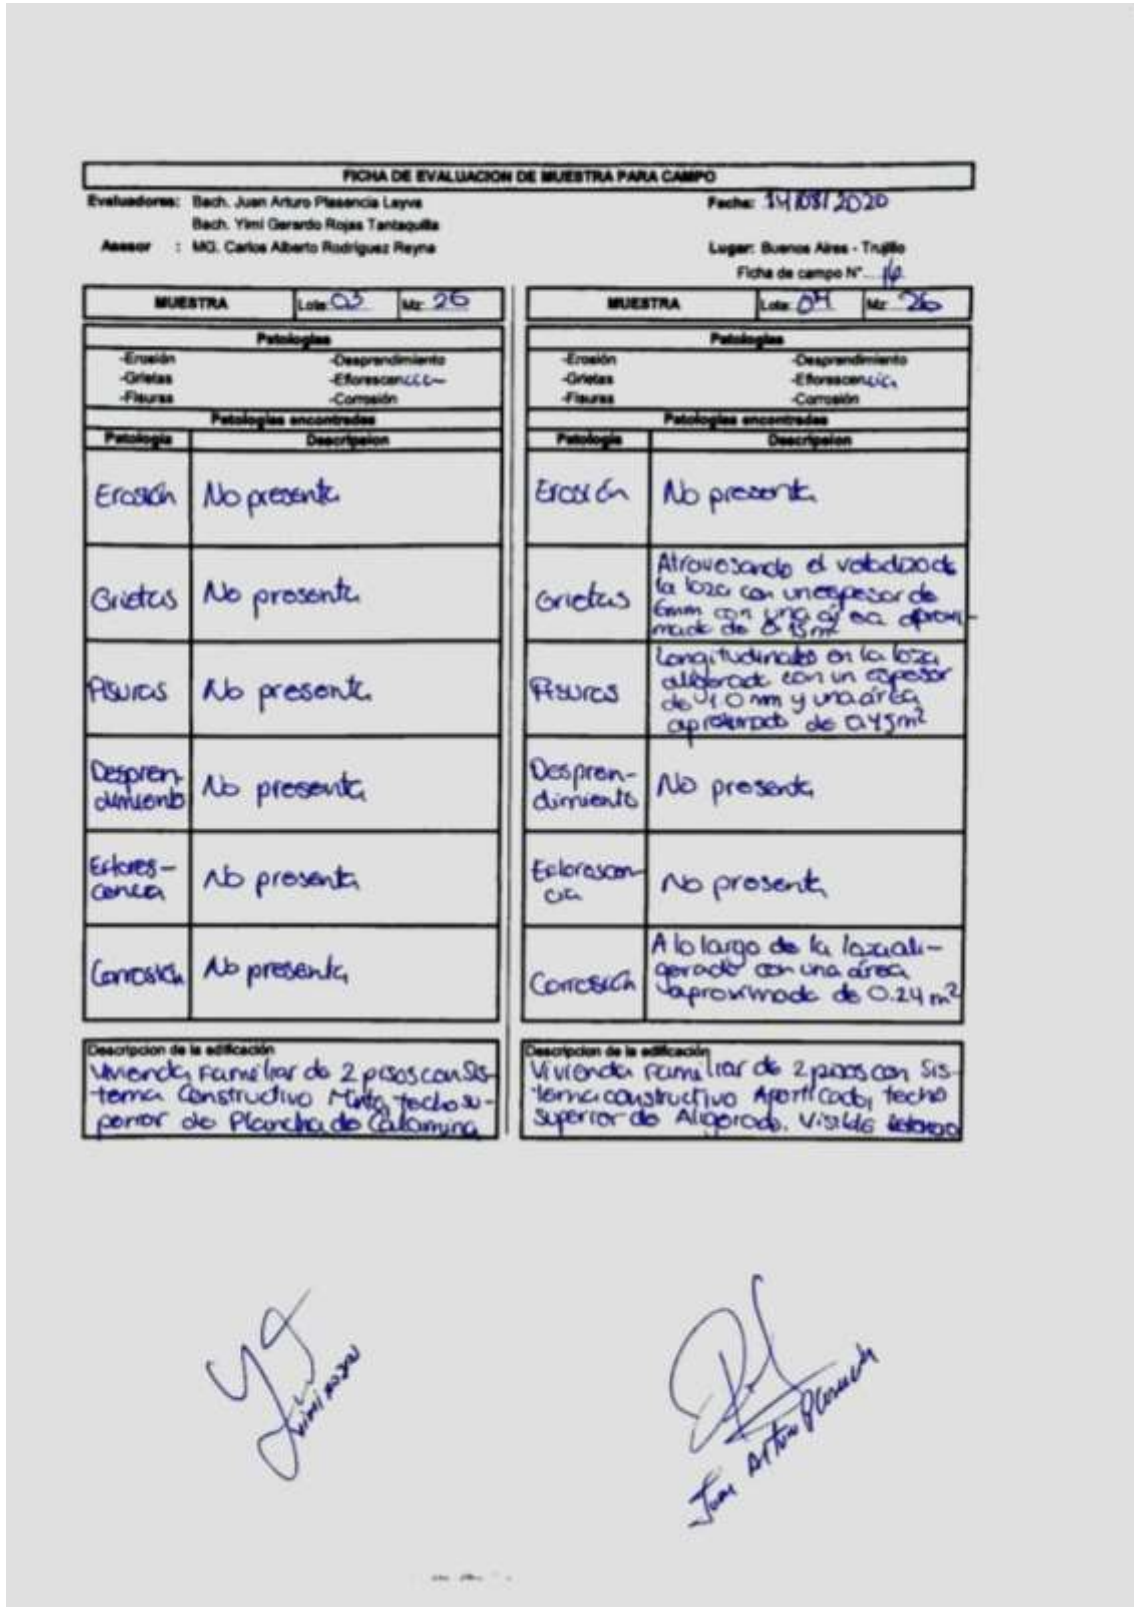 FICHA DE EVALUACION DE MUESTRA PARA CAMPO
Evaluadores: Bach. Juan Arturo Plasencia Leyva
Fecha: 14/08/2020
Bach. Yimi Gerardo Rojas Tantaquilla
Asesor : MG. Carlos Alberto Rodríguez Reyna
Lugar: Buenos Aires - Trujillo
Ficha de campo N° 16
MUESTRA Lote: 03 Mz: 26
Patologías
-Erosión -Desprendimiento
-Grietas -Eflorescencia
-Fisuras -Corrosión
Patologías encontradas
Patología Descripsion
Erosión No presenta
Grietas No presenta
Fisuras No presenta
Despren-
dimiento No presenta
Eflores-
cencia No presenta
Corrosión No presenta
Descripcion de la edificación
Vivienda Familiar de 2 pisos con Sis-
tema Constructivo Mixto, techo su-
perior de Plancha de Calamina
MUESTRA Lote: 04 Mz: 26
Patologías
-Erosión -Desprendimiento
-Grietas -Eflorescencia
-Fisuras -Corrosión
Patologías encontradas
Patología Descripsion
Erosión No presenta
Grietas Atravesando el voladizo de
la loza con un espesor de
6mm con una área aproxi-
mada de 0.15m²
Fisuras Longitudinales en la loza
aligerada con un espesor
de 1.0 mm y una área
de 0.45m²
Despren-
dimiento No presenta
Eclorescen-
cia No presenta
Corrosión A lo largo de la loza ali-
gerado con una área
aproximada de 0.24 m²
Descripcion de la edificación
Vivienda Familiar de 2 pisos con Sis-
tema constructivo Aporticado, techo
superior de Aligerado. Visible
Juan Arturo Plasencia